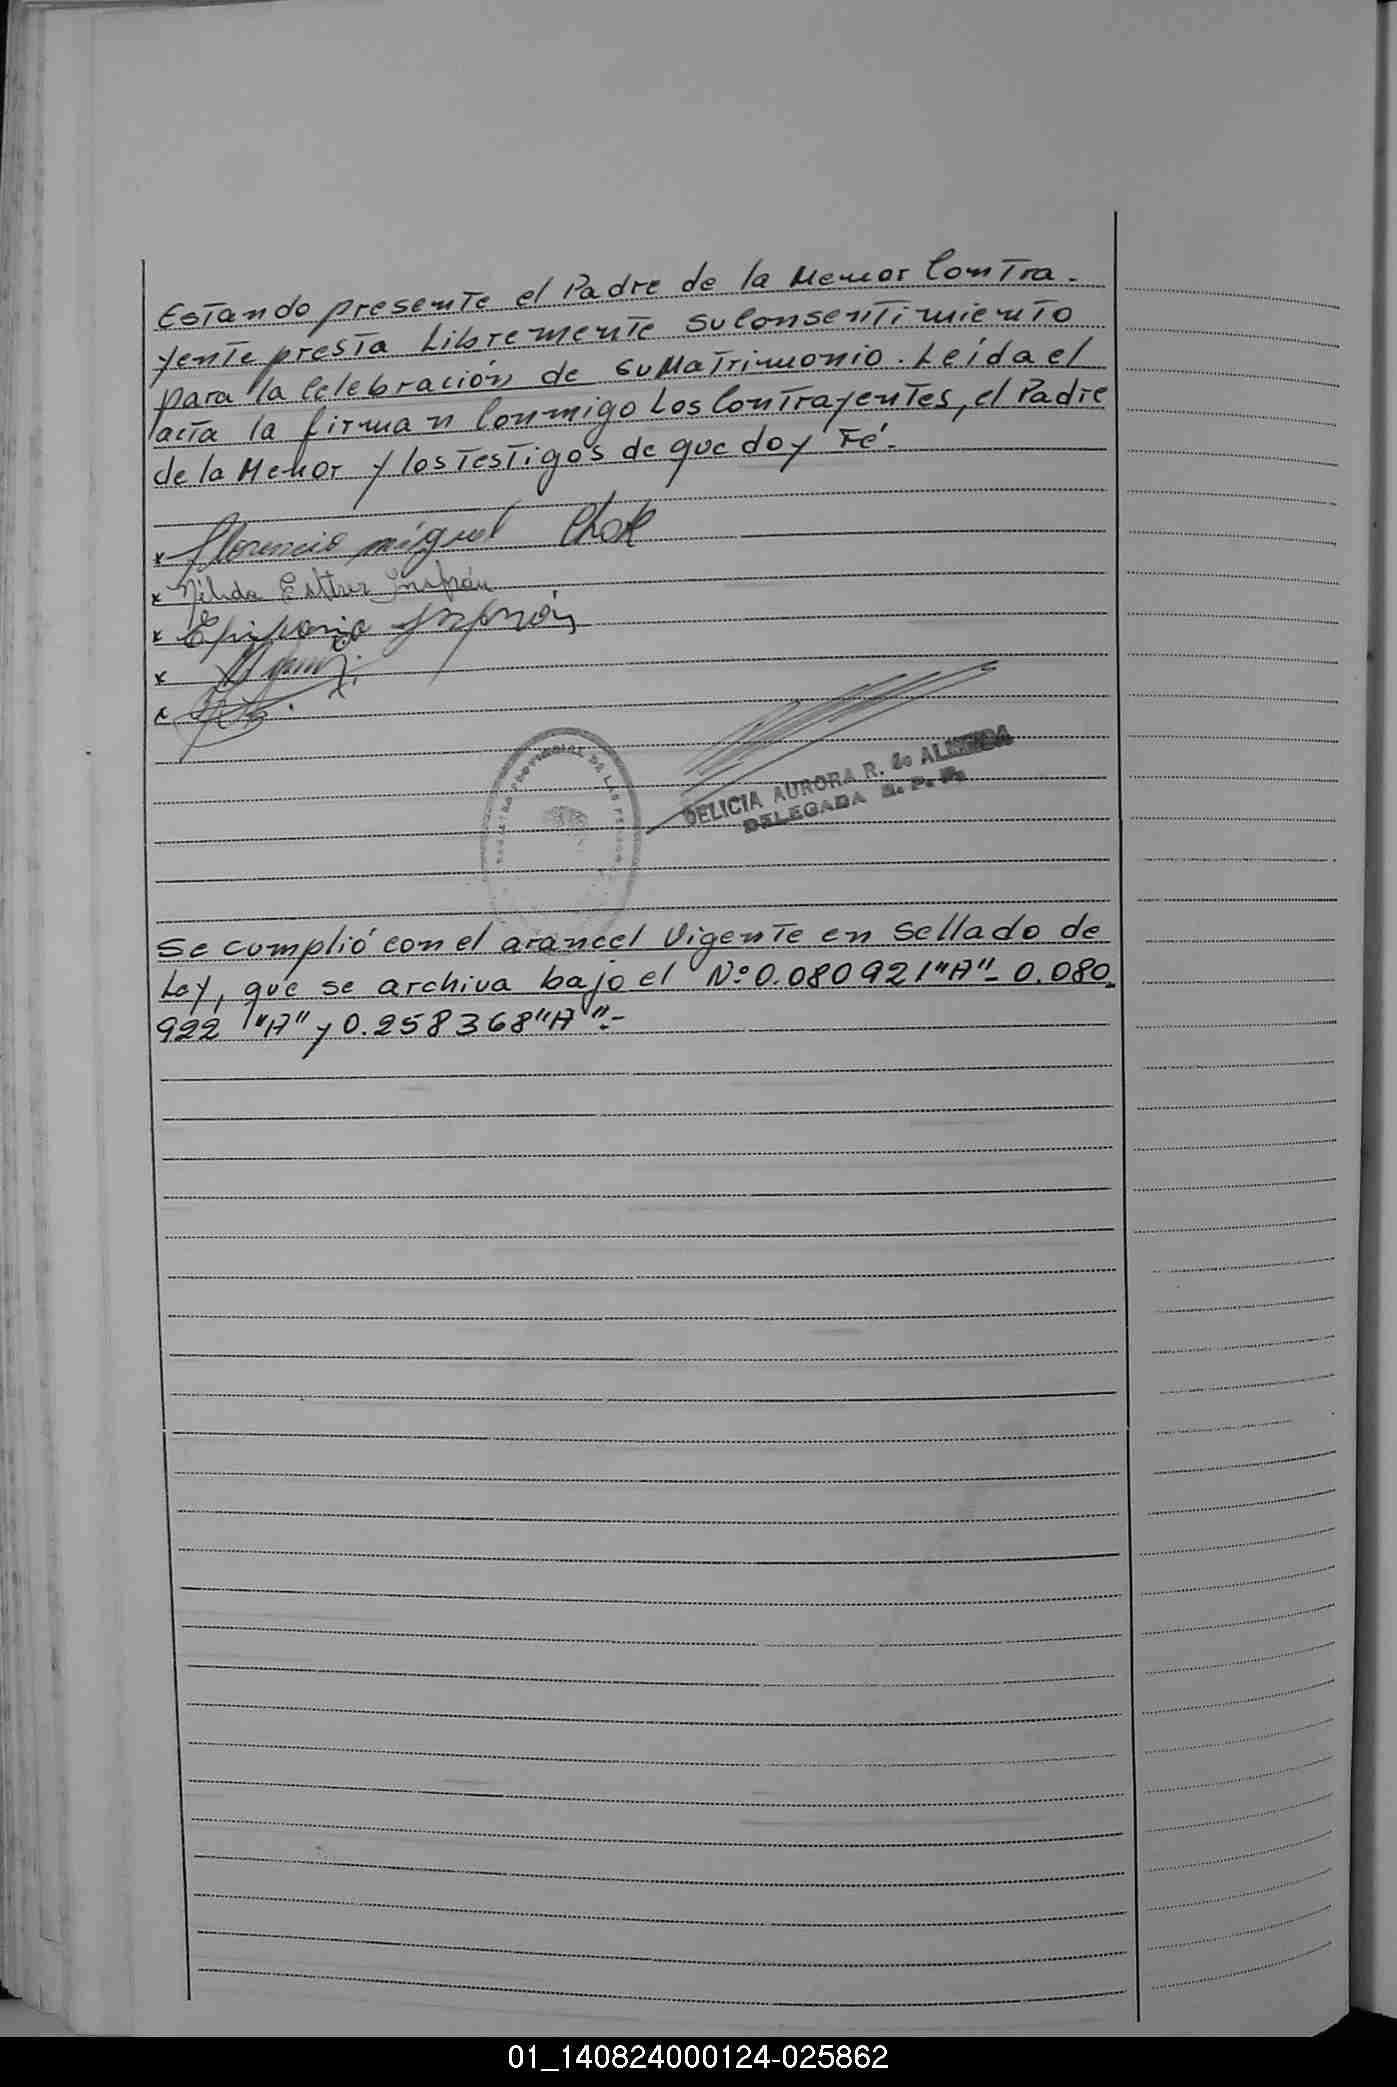 Estando presente el Padre de la Menor Contra-
yente presta Libremente su Consentimiento
para la Celebración de su Matrimonio. Leída el
acta la firman Conmigo Los Contrayentes, el Padre
de la Menor y los Testigos de que doy Fé.-
x Florencio miguel
x Nélida Esther Insfrán
x Epifanio Insfrán
x
x
REGISTRO PROVINCIAL DE LAS PERSONAS
DELICIA AURORA R. de ALMEIDA
DELEGADA R. P. P.
Se cumplió con el arancel Vigente en Sellado de
Ley, que se archiva bajo el Nº 0.080921"A"- 0.080.
922 "A" y 0.258368"A".-
01_140824000124-025862